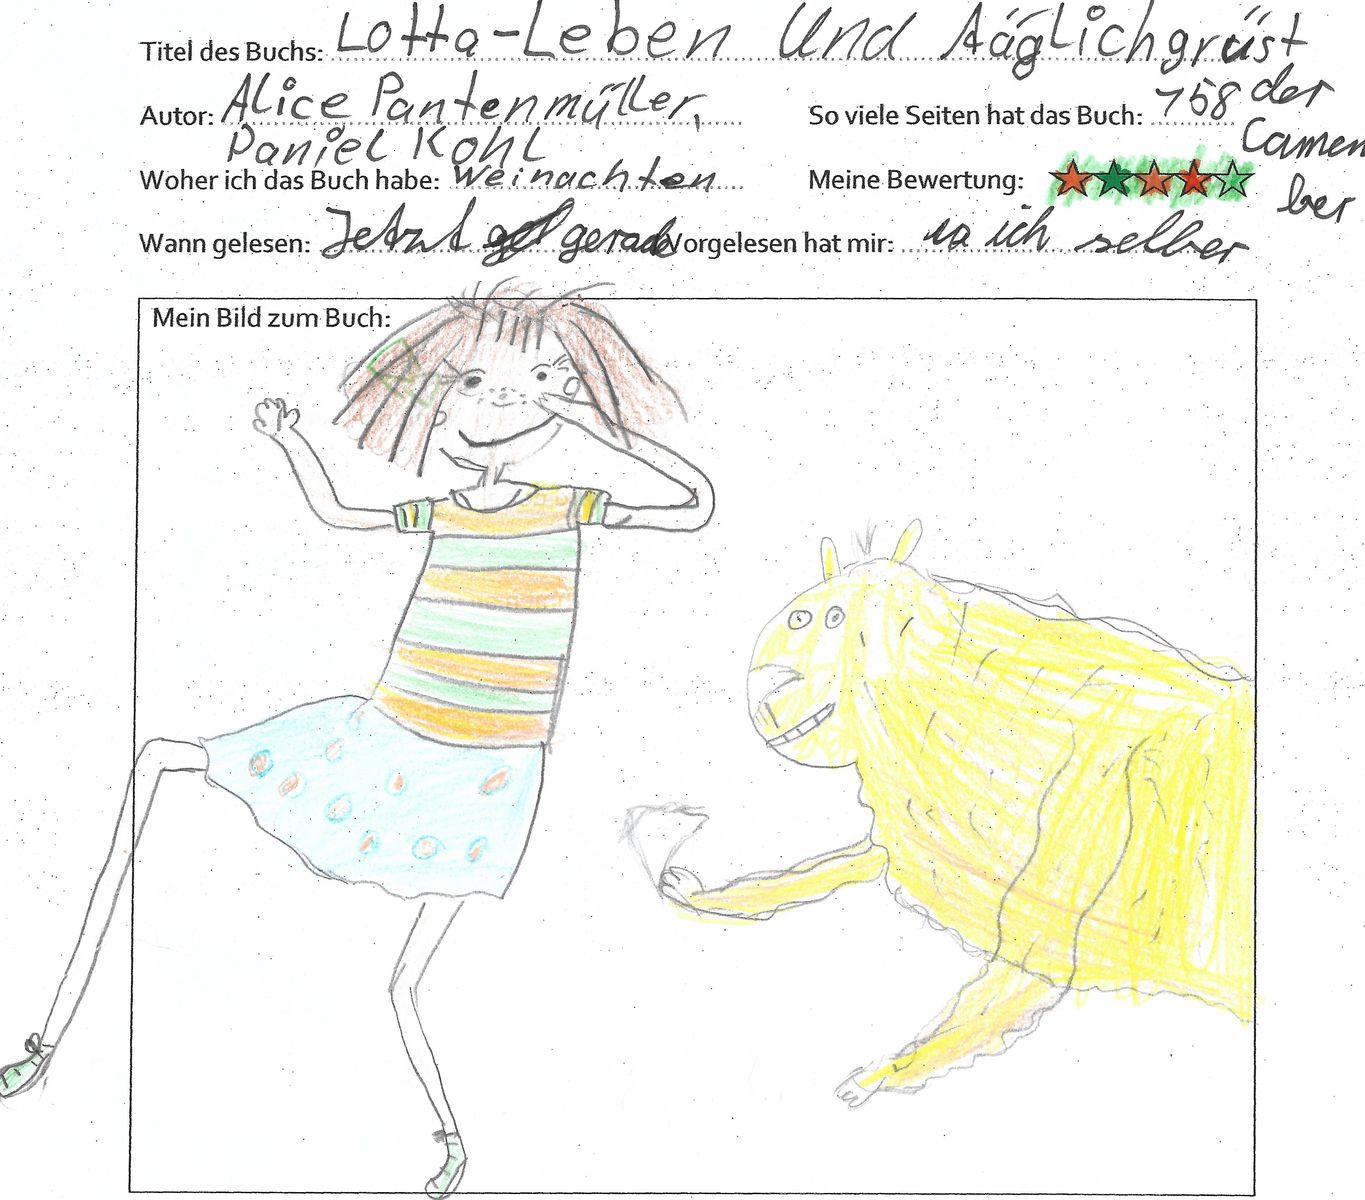 Titel des Buchs: Lotta-Leben Und Aäglichgrüst
der Camenber
Autor: Alice Pantenmüller,
Daniel Kohl
So viele Seiten hat das Buch: 158
Woher ich das Buch habe: Weinachten
Meine Bewertung:
Wann gelesen: Jetzt gerade
Vorgelesen hat mir: ich selber
Mein Bild zum Buch: